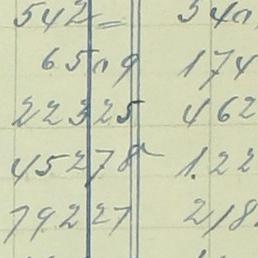 542 = 540
6509 174
22325 462
45278 1.22
79227 218